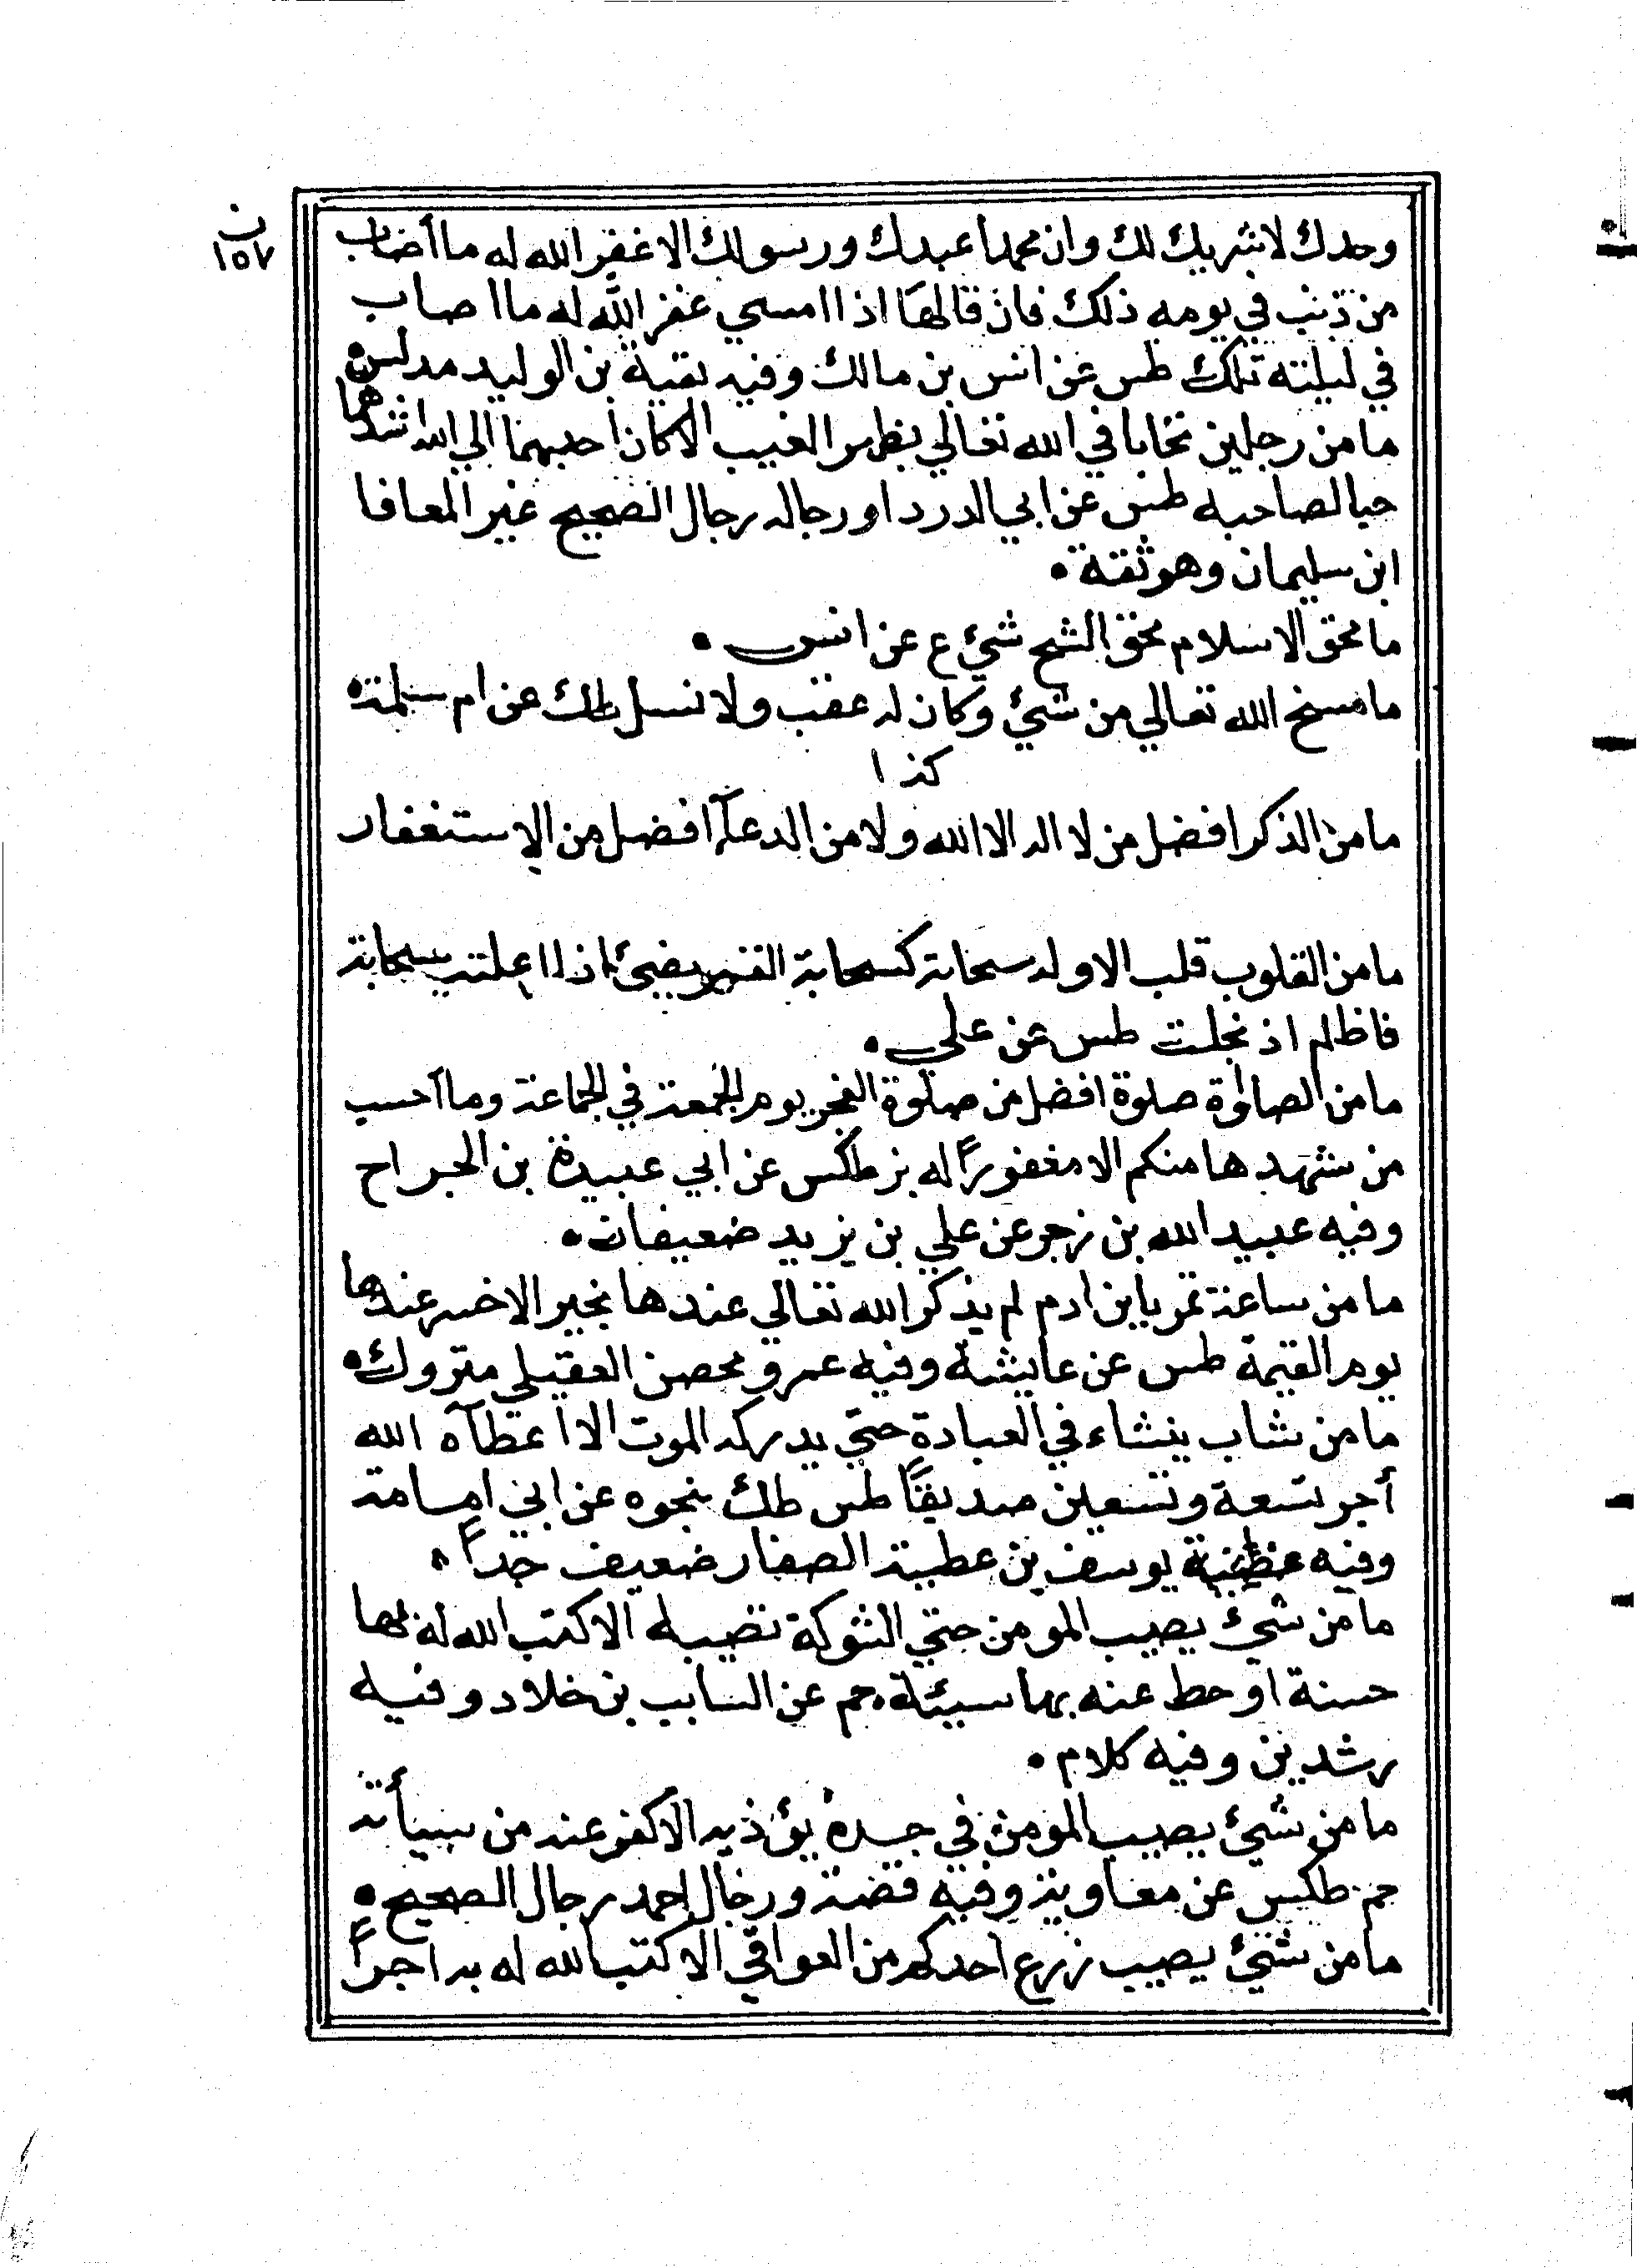 ن
١٥٧
وحدك لا شريك لك وان محمدا عبدك ورسولك الا غفر الله له ما أصاب
من ذنب في يومه ذلك فان قالها اذا امسي غفر الله له ما اصاب
في ليلته تلك طس عن انس بن مالك وفيه بقية بن الوليد مدلس
ما من رجلين تحابا في الله تعالي بظهر الغيب الا كان احبهما الي الله اشدهما
حبا لصاحبه طس عن ابي الدردا ورجاله رجال الصحيح غير المعافا
ابن سليمان وهو ثقة
ما محق الاسلام محق الشح شيئ ع عن انس
ما مسخ الله تعالي من شيئ وكان له عقب ولا نسل طك عن ام سلمة
كذا
ما من الذكر افضل من لا اله الا الله ولا من الدعآء افضل من الاستغفار
ما من القلوب قلب الا وله سحابة كسحابة القمر يضيئ اذا اعلته سحابة
فاظلم اذ نجلت طس عن علي
ما من الصلوة صلوة افضل من صلوة الفجر يوم الجمعة في الجماعة وما أحسب
من شهدها منكم الا مغفوراً له بز طكس عن ابي عبيدة بن الجراح
وفيه عبيد الله بن زحر عن علي بن يزيد ضعيفان
ما من ساعة تمر بابن ادم لم يذكر الله تعالي عندها بخير الا خسر عندها
يوم القيمة طس عن عايشة وفيه عمرو محصن العقيلي متروك
ما من شاب ينشاء في العبادة حتي يدركه الموت الا اعطآه الله
أجر تسعة وتسعين صديقاً طس طك بنحوه عن ابي امامة
وفيه عطية يوسف بن عطية الصفار ضعيف جداً
ما من شيئ يصيب المومن حتي الشوكة تصيبه الا كتب الله له بها
حسنة او حط عنه بها سيئة حم عن السايب بن خلاد وفيه
رشدين وفيه كلام
ما من شيئ يصيب المومن في جسده يؤذيه الا كفر عنه من سيأته
حم طكس عن معاوية وفيه قصة ورجال احمد رجال الصحيح
ما من شيئ يصيب زرع احدكم من العوافي الا كتب الله له به اجراً